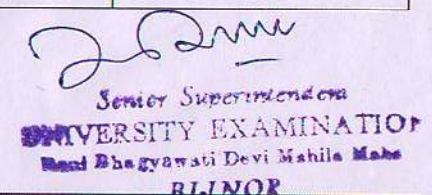 Senior Superintendent
UNIVERSITY EXAMINATION
Rani Bhagyawati Devi Mahila Maha
BIJNOR